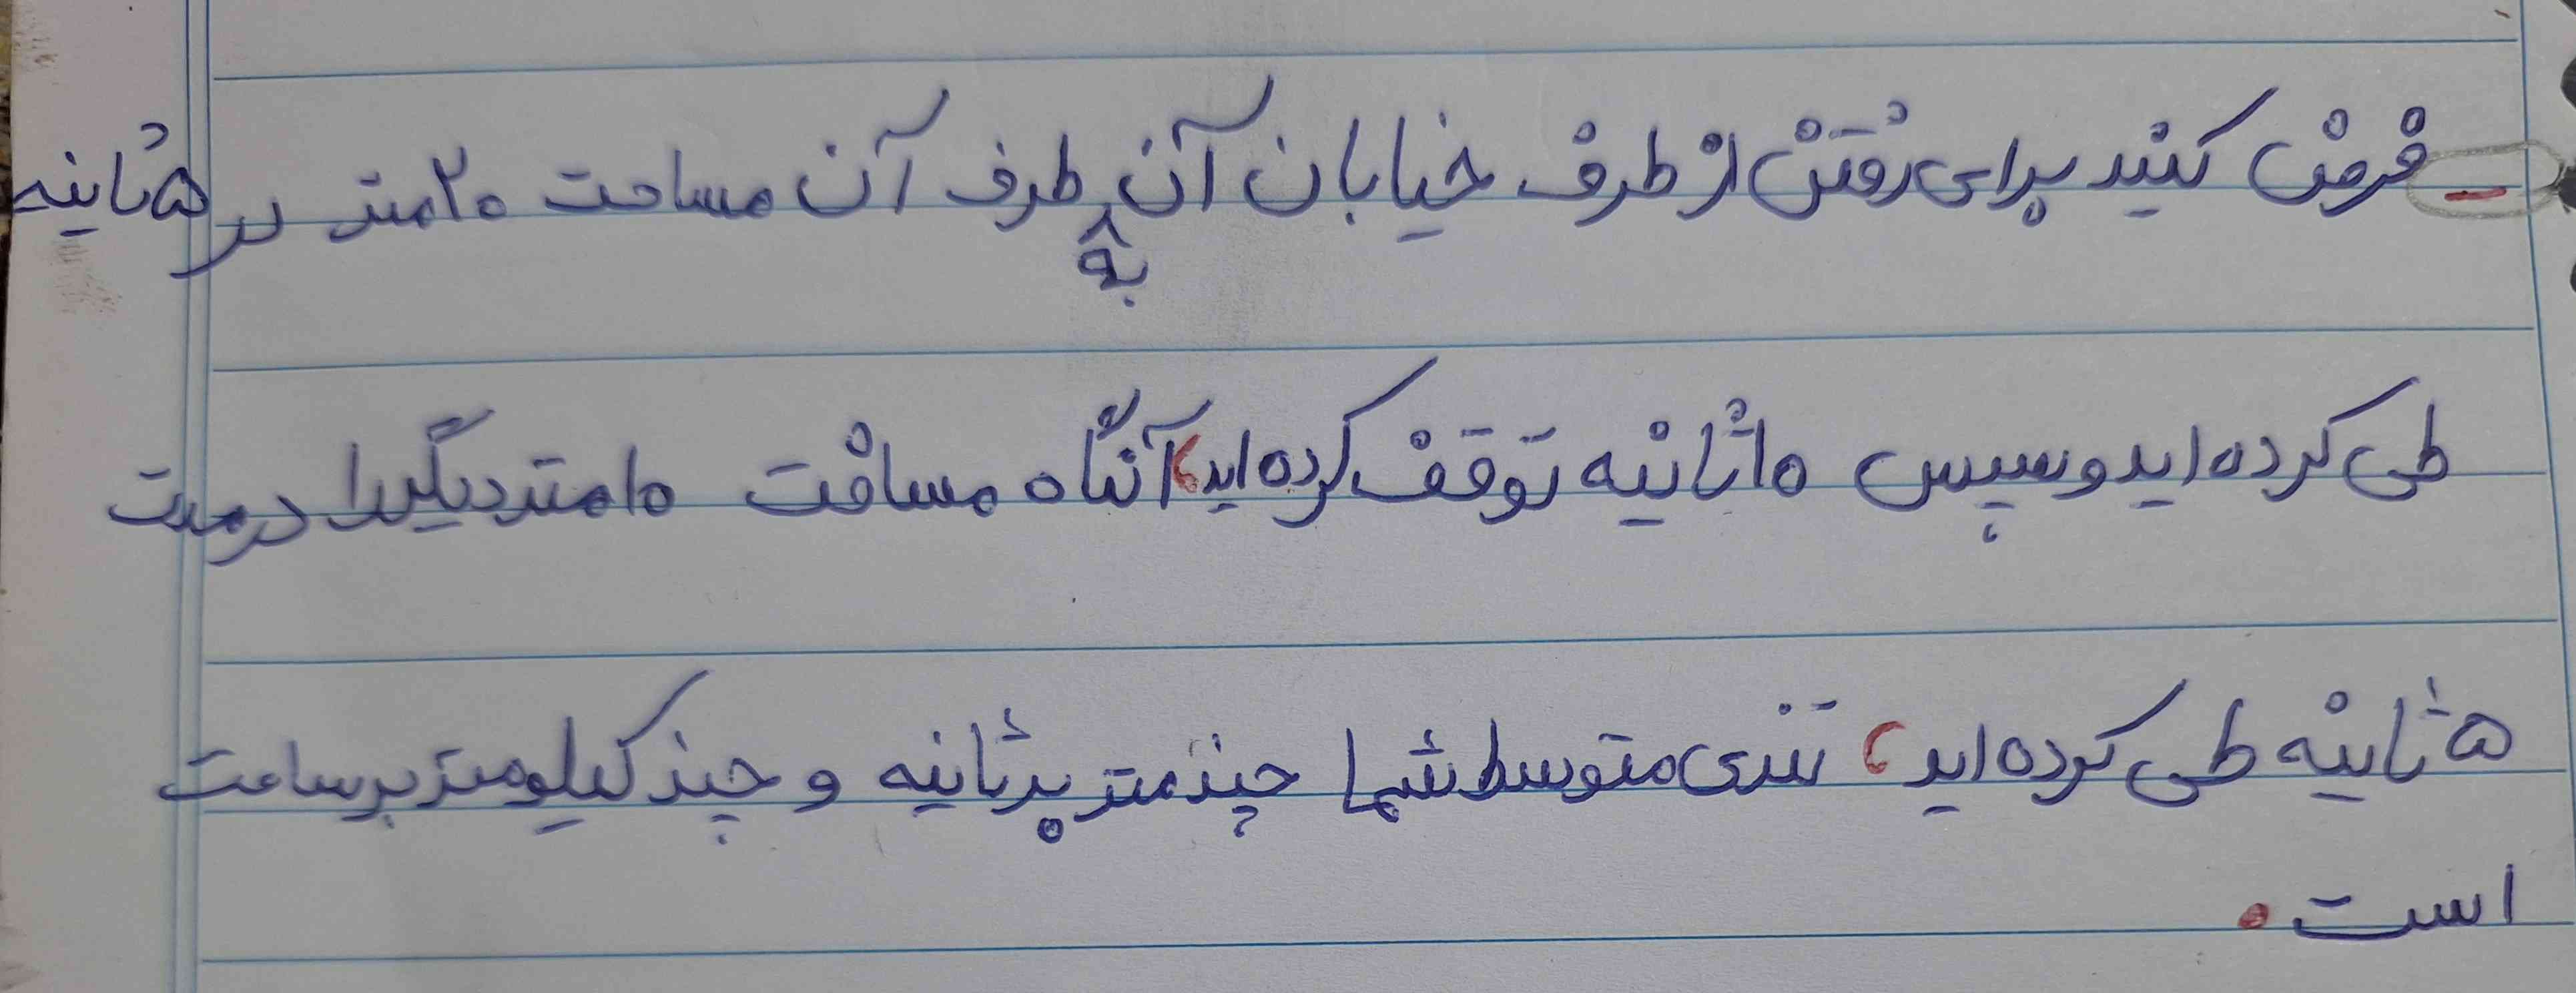 - فرض کنید برای رفتن از طرف خیابان آن به طرف آن مساحت ۲۰ متر در ۵ ثانیه
طی کرده اید و سپس ۱۰ ثانیه توقف کرده اید، آنگاه مسافت ۱۰ متر دیگر را در مدت
۵ ثانیه طی کرده اید، تندی متوسط شما چند متر بر ثانیه و چند کیلومتر بر ساعت
است.